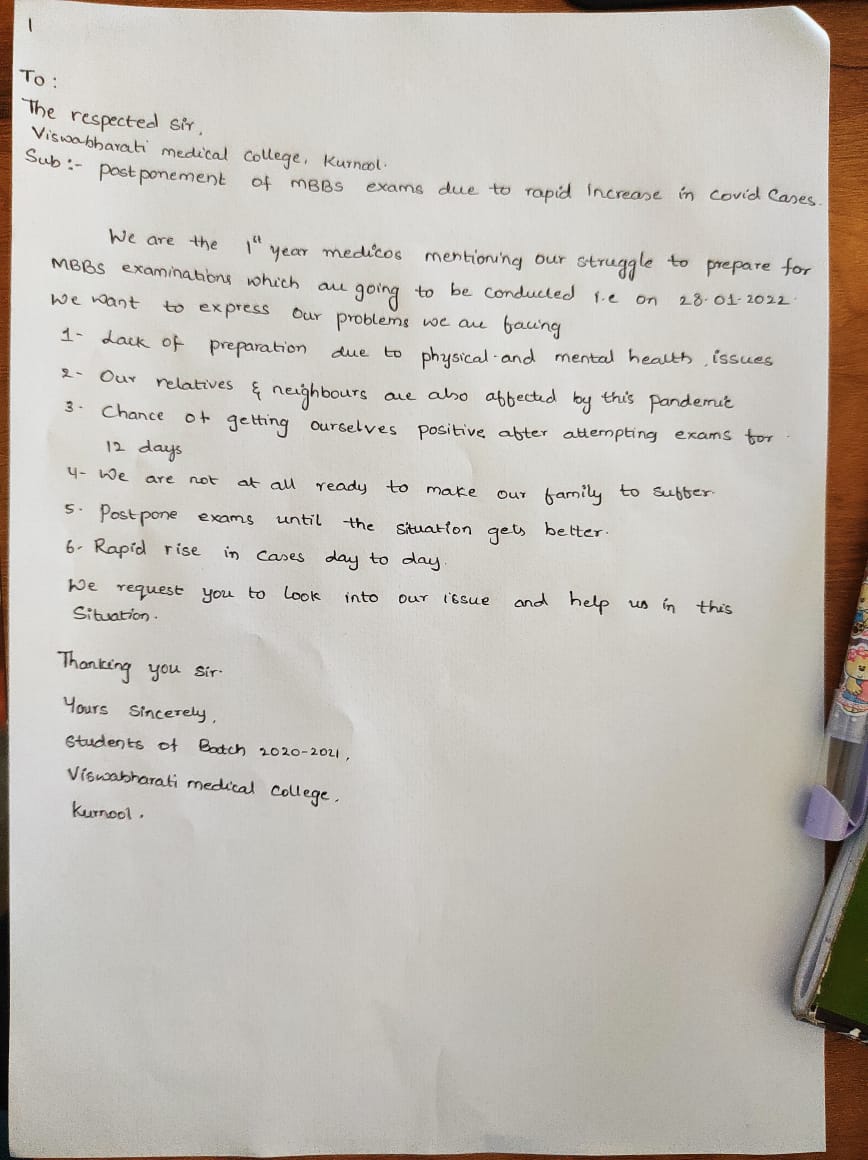 1
To :
The respected sir,
Viswabharati medical college, Kurnool.
Sub :- postponement of MBBS exams due to rapid increase in covid cases.
We are the 1st year medicos mentioning our struggle to prepare for
MBBS examinations which are going to be conducted i.e on 28-01-2022.
We want to express our problems we are facing
1- Lack of preparation due to physical and mental health issues
2- Our relatives & neighbours are also affected by this pandemic
3- Chance of getting ourselves positive after attempting exams for
12 days
4- We are not at all ready to make our family to suffer.
5. Postpone exams until the situation gets better.
6- Rapid rise in cases day to day.
We request you to look into our issue and help us in this
situation.
Thanking you sir.
Yours Sincerely,
Students of Batch 2020-2021,
Viswabharati medical college,
Kurnool.